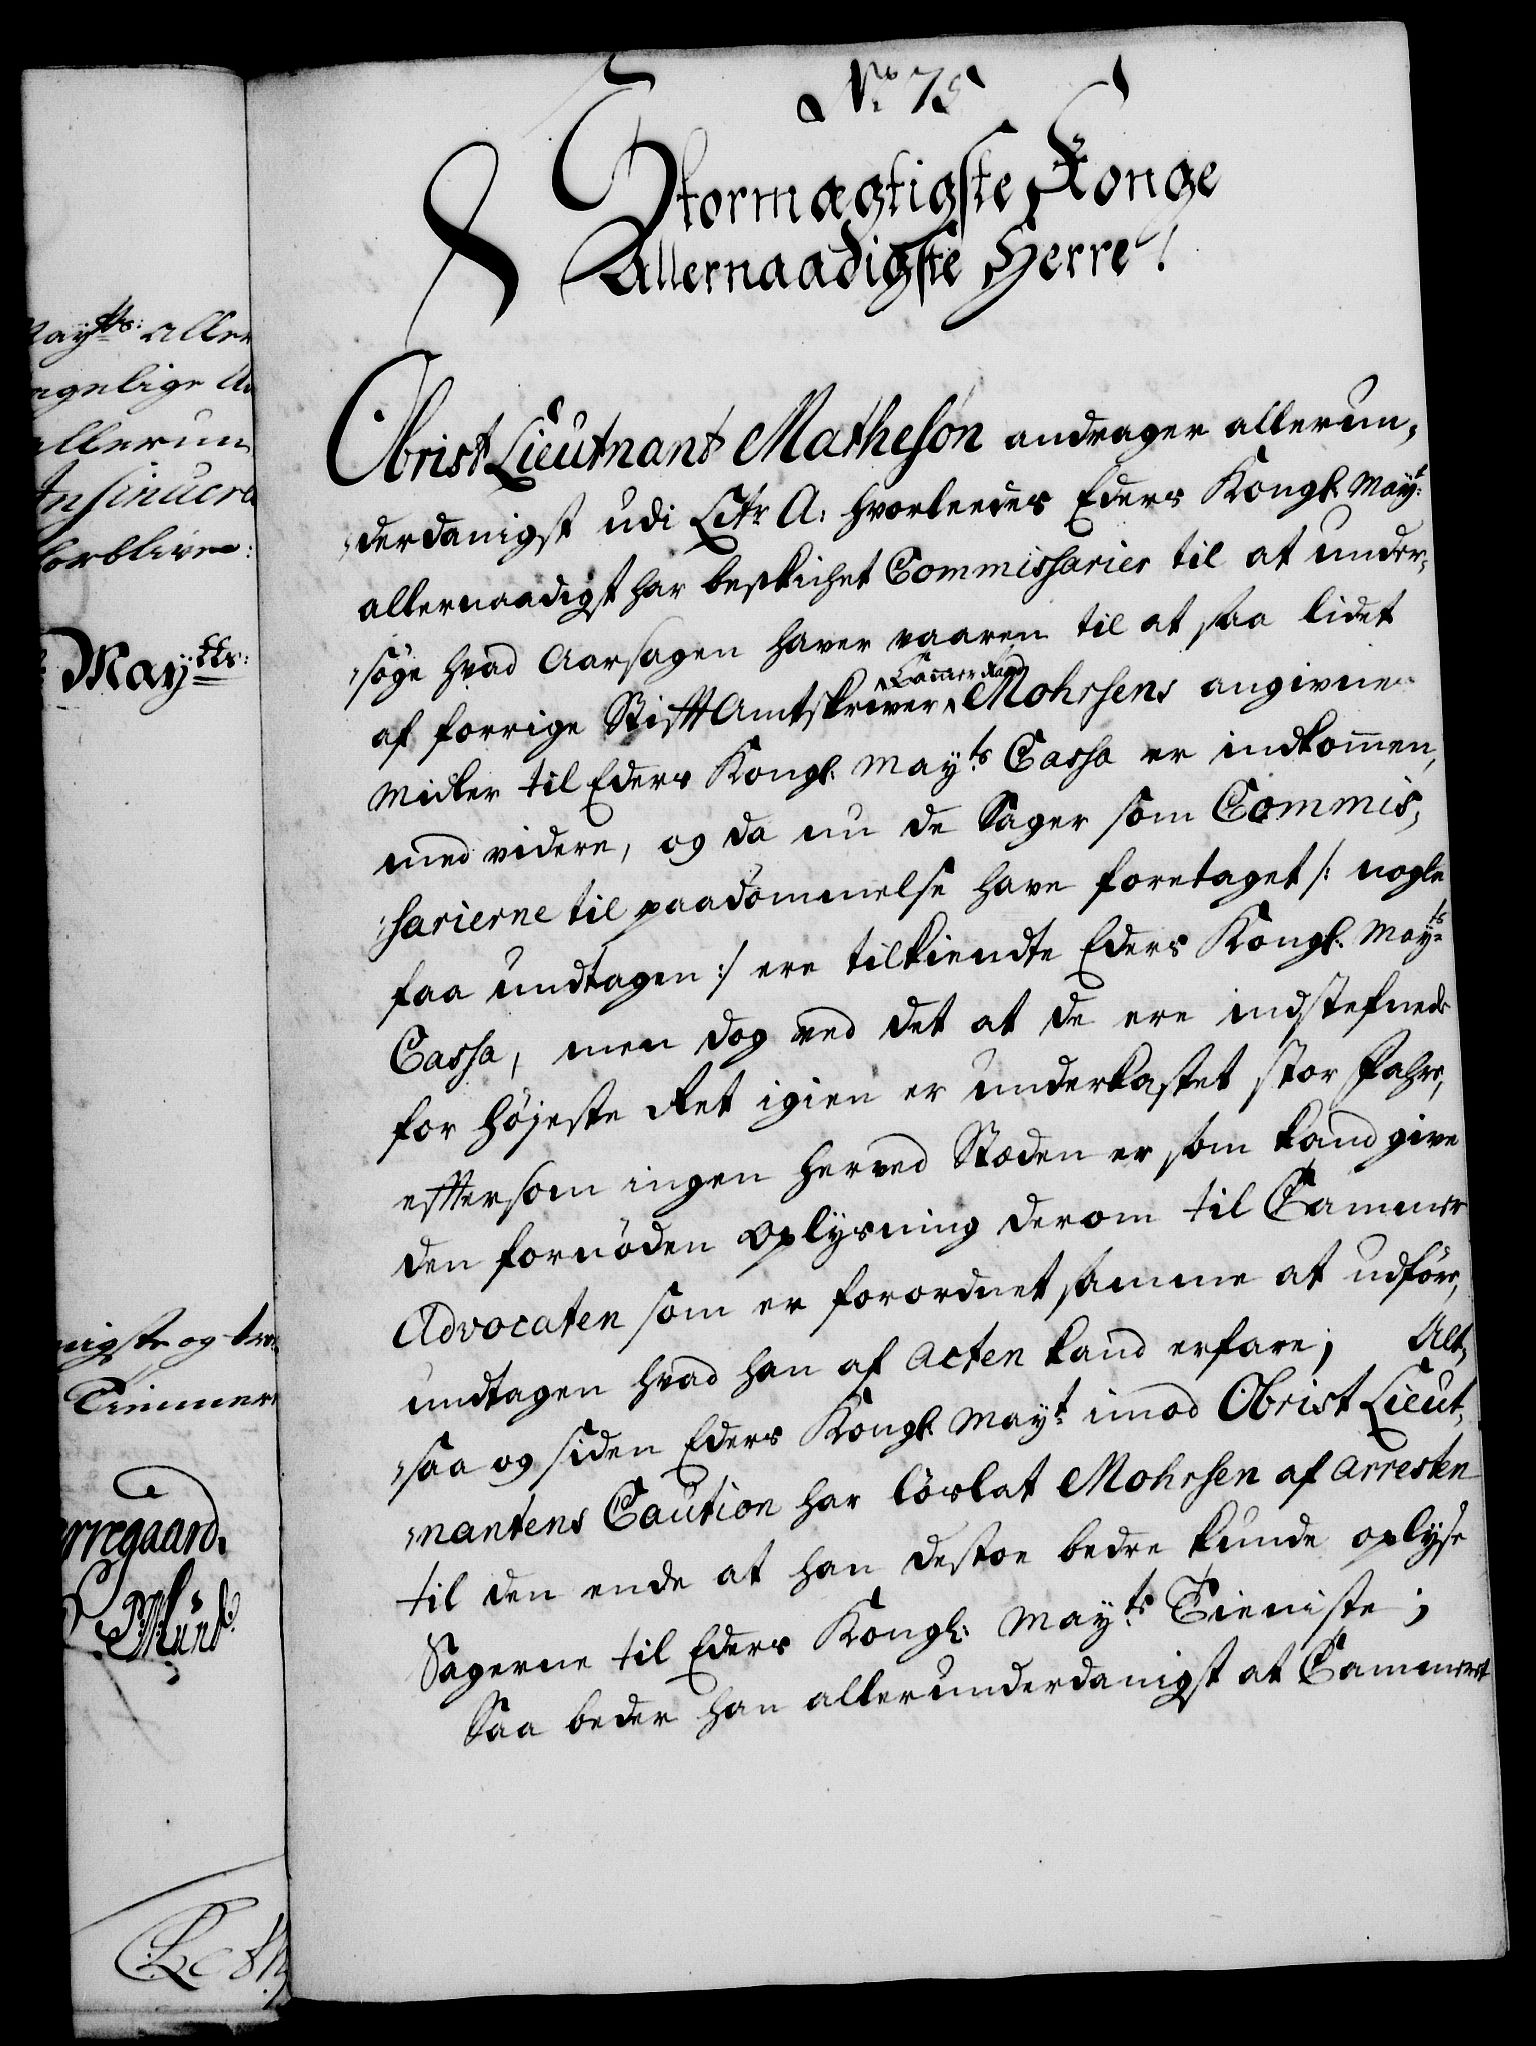 No. 75
Stormægtigste Konge
Allernaadigste Herre!
Obrist Lieutnant Matheson andrager allerun,
derdanigst udi Litr A: hvorleedes Eders Kongl. Mayt:
allernaadigst har beskichet Commissarier til at under,
søge hvad Aarsagen haver vaaren til at saa lidet
af forrige StifftAmtskriver Cammer Raad Mohrsens angivne
Midler til Eders Kongl. Mayts Cassa er indkommen,
med videre, og da nu de Sager som Commis,
sarierne til paadømmelse have foretaget /: nogle
faa undtagen :/ ere tilkiendte Eders Kongl. Mayts
Cassa, men dog ved det at de ere indstefnede
for Højeste Ret igien er underkastet stor Fahre,
efftersom ingen herved Stæden er som kand give
den fornøden Oplysning derom til Cammer
Advocaten som er forordnet samme at udføre,
undtagen hvad han af Acten kand erfare; Alt,
saa og siden Eders Kongl. Mayt imod Obrist Lieut,
nantens Caution har løslat Mohrsen af Arresten
til den ende at han destoe bedre kunde oplyse
Sagerne til Eders Kongl: Mayts Tieniste;
Saa beder han allerunderdanigst at Cammeret
Mayts: aller
allerun
Insinuere
forblive:
Mayts:
nigste og tro
Timmer
Münt